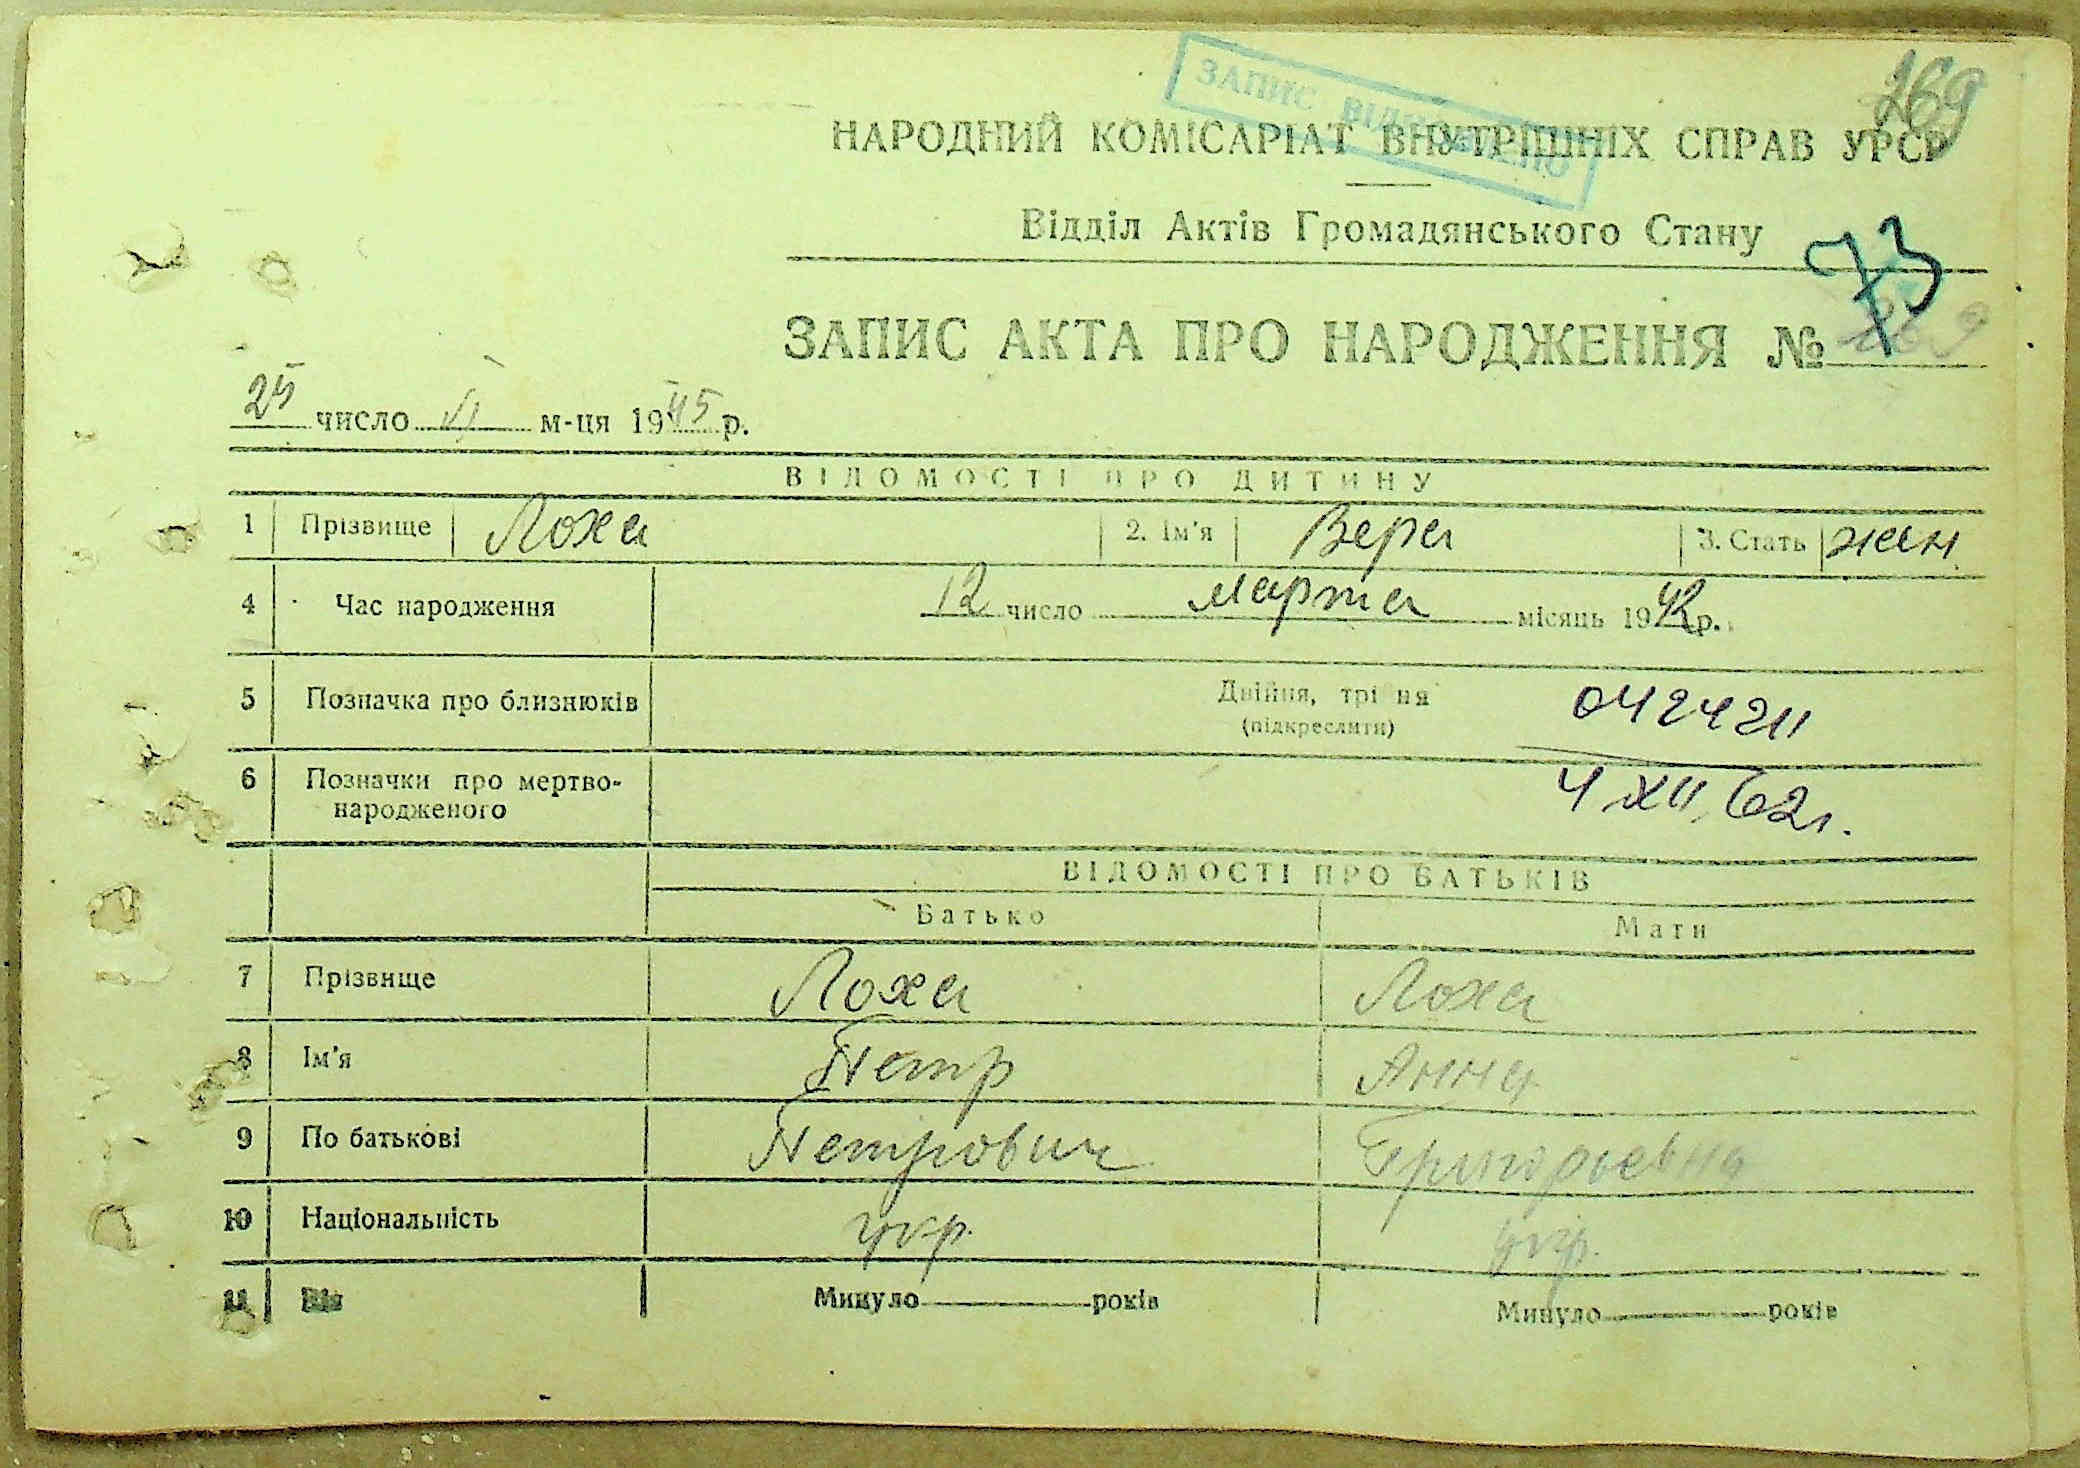 269
ЗАПИС ВІДНОВЛЕНО
НАРОДНИЙ КОМІСАРІАТ ВНУТРІШНІХ СПРАВ УРСР
Відділ Актів Громадянського Стану
73
ЗАПИС АКТА ПРО НАРОДЖЕННЯ № 269
25 число VI м-ця 1945 р.
ВІДОМОСТІ ПРО ДИТИНУ
1 Прізвище Лоха 2. Ім'я Вера 3. Стать жен
4 Час народження 12 число марта місяць 1942 р.
5 Позначка про близнюків Двійня, трійня
(підкреслити)
0424211
6 Позначки про мертво-
народженого
4 XII 62г.
ВІДОМОСТІ ПРО БАТЬКІВ
Батько Мати
7 Прізвище Лоха Лоха
8 Ім'я Петр Анна
9 По батькові Петрович Григорьевна
10 Національність укр. укр.
11 Вік Минуло років Минуло років